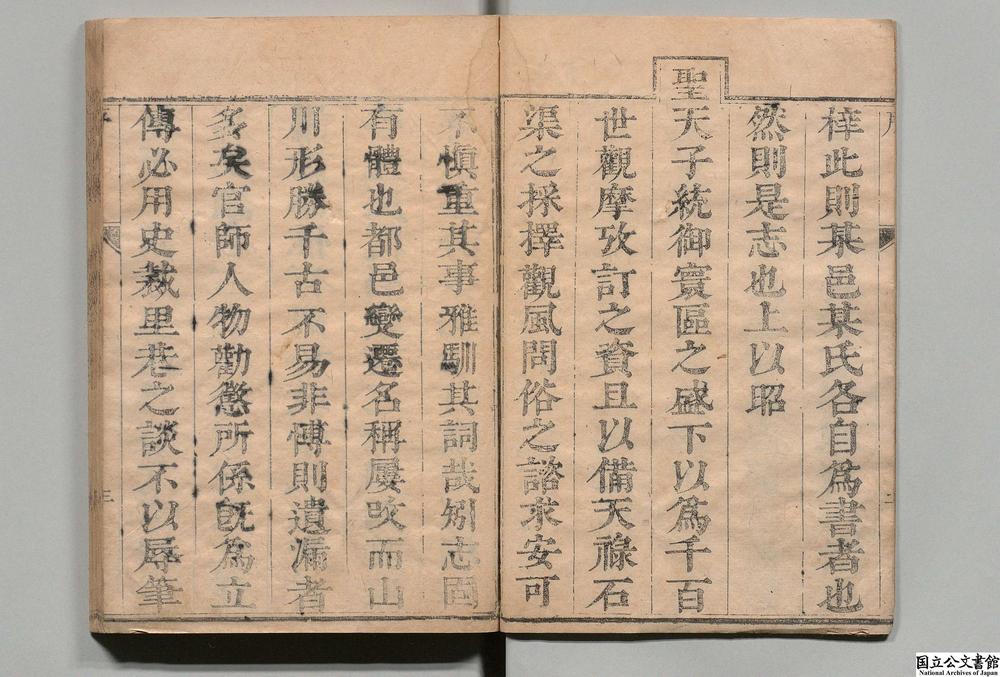 梓此則某邑某氏各自爲書者也
然則是志也上以昭
聖天子統御寰區之盛下以爲千百
世觀摩攷訂之資且以備天祿石
渠之採擇觀風問俗之諮求安可
不慎重其事雅馴其詞哉矧志固
有體也都邑變遷名稱屢改而山
川形勝千古不易非慱則遺漏者
多矣官師人物勸懲所係旣爲立
傳必用史裁里巷之談不以辱筆
序
二
三
国立公文書館
National Archives of Japan